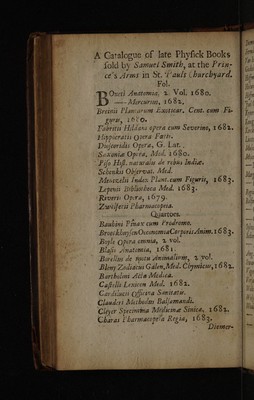 A Catalogue of late Physick Books
sold by Samuel Smith, at the Prin-
ce's Arms in St. Pauls Churchyard.
Fol.
BOneti Anatomia, 2. Vol. 1680.
—— Mercurius, 1682.
Breinii Plantarum Exoticar. Cent. cum Fi-
guris, 1680.
Fabritii Hildani opera cum Severino, 1682.
Hippocratis Opera Fœtii.
Dioscoridis Opera, G. Lat.
Opera, Med. 1680.
Piso Hist. naturalis de rebus Indiæ.
Schenkii Observat. Med.
Mentzelii Index Plant. cum Figuris, 1683.
Lipenii Bibliotheca Med. 1683.
Riverii Opera, 1679.
Zwelferii Pharmacopœa.
Quartoes.
Bauhini Pinax cum Prodromo.
Broeckhuysen Oeconomia Corporis Anim. 1683.
Boyle Opera omnia, 2 vol.
Blasii Anatomia, 1681.
Borellus de motu Animalium, 2 vol.
Blegny Zodiacus Gallen. Med. Chymicus, 1682.
Bartholini Acta Medica.
Castelli Lexicon Med. 1682.
Cardilucii Officina Sanitatis.
Clauderi Methodus Balsamandi.
Cleyer Specimina Medicinæ Sinicæ. 1682.
Charas Pharmacopœa Regia, 1683.
Diemer-